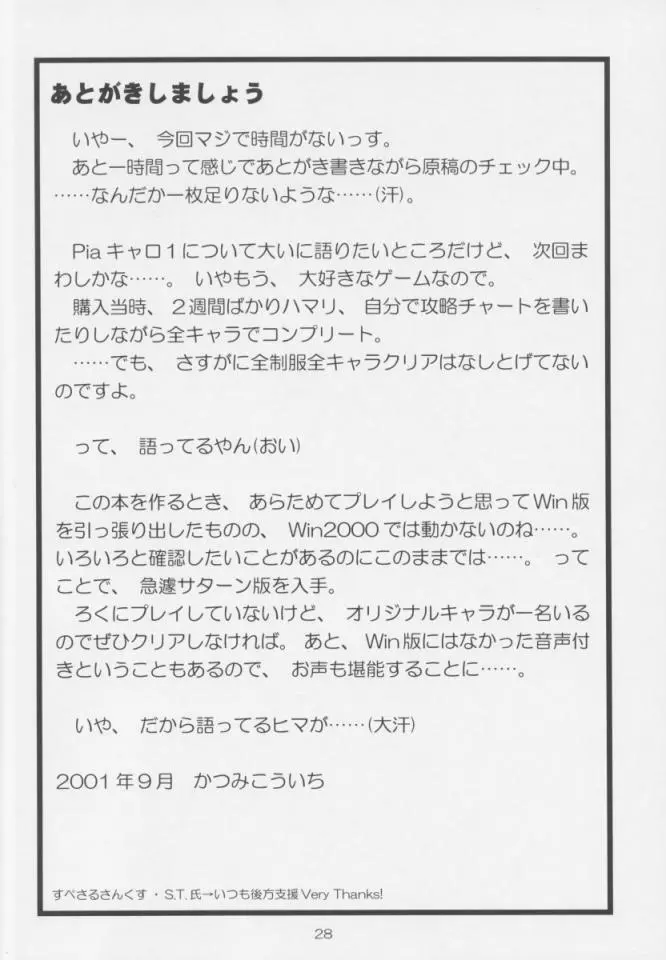 あとがきしましょう
いやー、今回マジで時間がないっす。
あと一時間って感じであとがき書きながら原稿のチェック中。
……なんだか一枚足りないような……(汗)。
Piaキャロ1について大いに語りたいところだけど、次回ま
わしかな……。いやもう、大好きなゲームなので。
購入当時、2週間ばかりハマリ、自分で攻略チャートを書い
たりしながら全キャラでコンプリート。
……でも、さすがに全制服全キャラクリアはなしとげてない
のですよ。
って、語ってるやん(おい)
この本を作るとき、あらためてプレイしようと思ってWin版
を引っ張り出したものの、Win2000では動かないのね……。
いろいろと確認したいことがあるのにこのままでは……。って
ことで、急遽サターン版を入手。
ろくにプレイしていないけど、オリジナルキャラが一名いる
のでぜひクリアしなければ。あと、Win版にはなかった音声付
きということもあるので、お声も堪能することに……。
いや、だから語ってるヒマが……(大汗)
2001年9月 かつみこういち
すぺさるさんくす・S.T.氏→いつも後方支援Very Thanks!
28